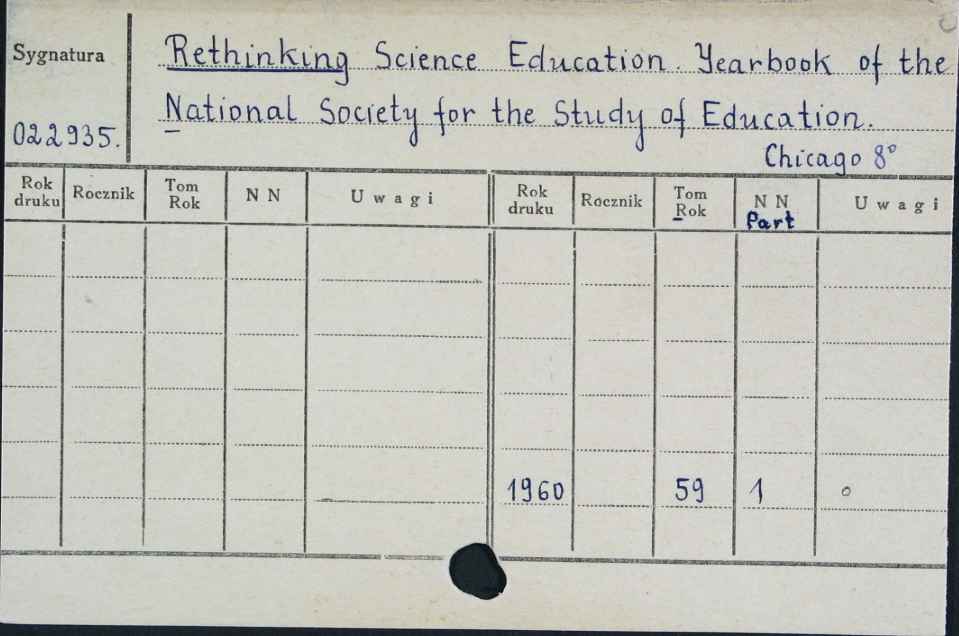 Sygnatura
022935.
Rethinking Science Education. Yearbook of the
National Society for the Study of Education.
Chicago 8°
Rok druku Rocznik Tom Rok N N Uwagi Rok druku Rocznik Tom Rok N N Part Uwagi
1960 59 1